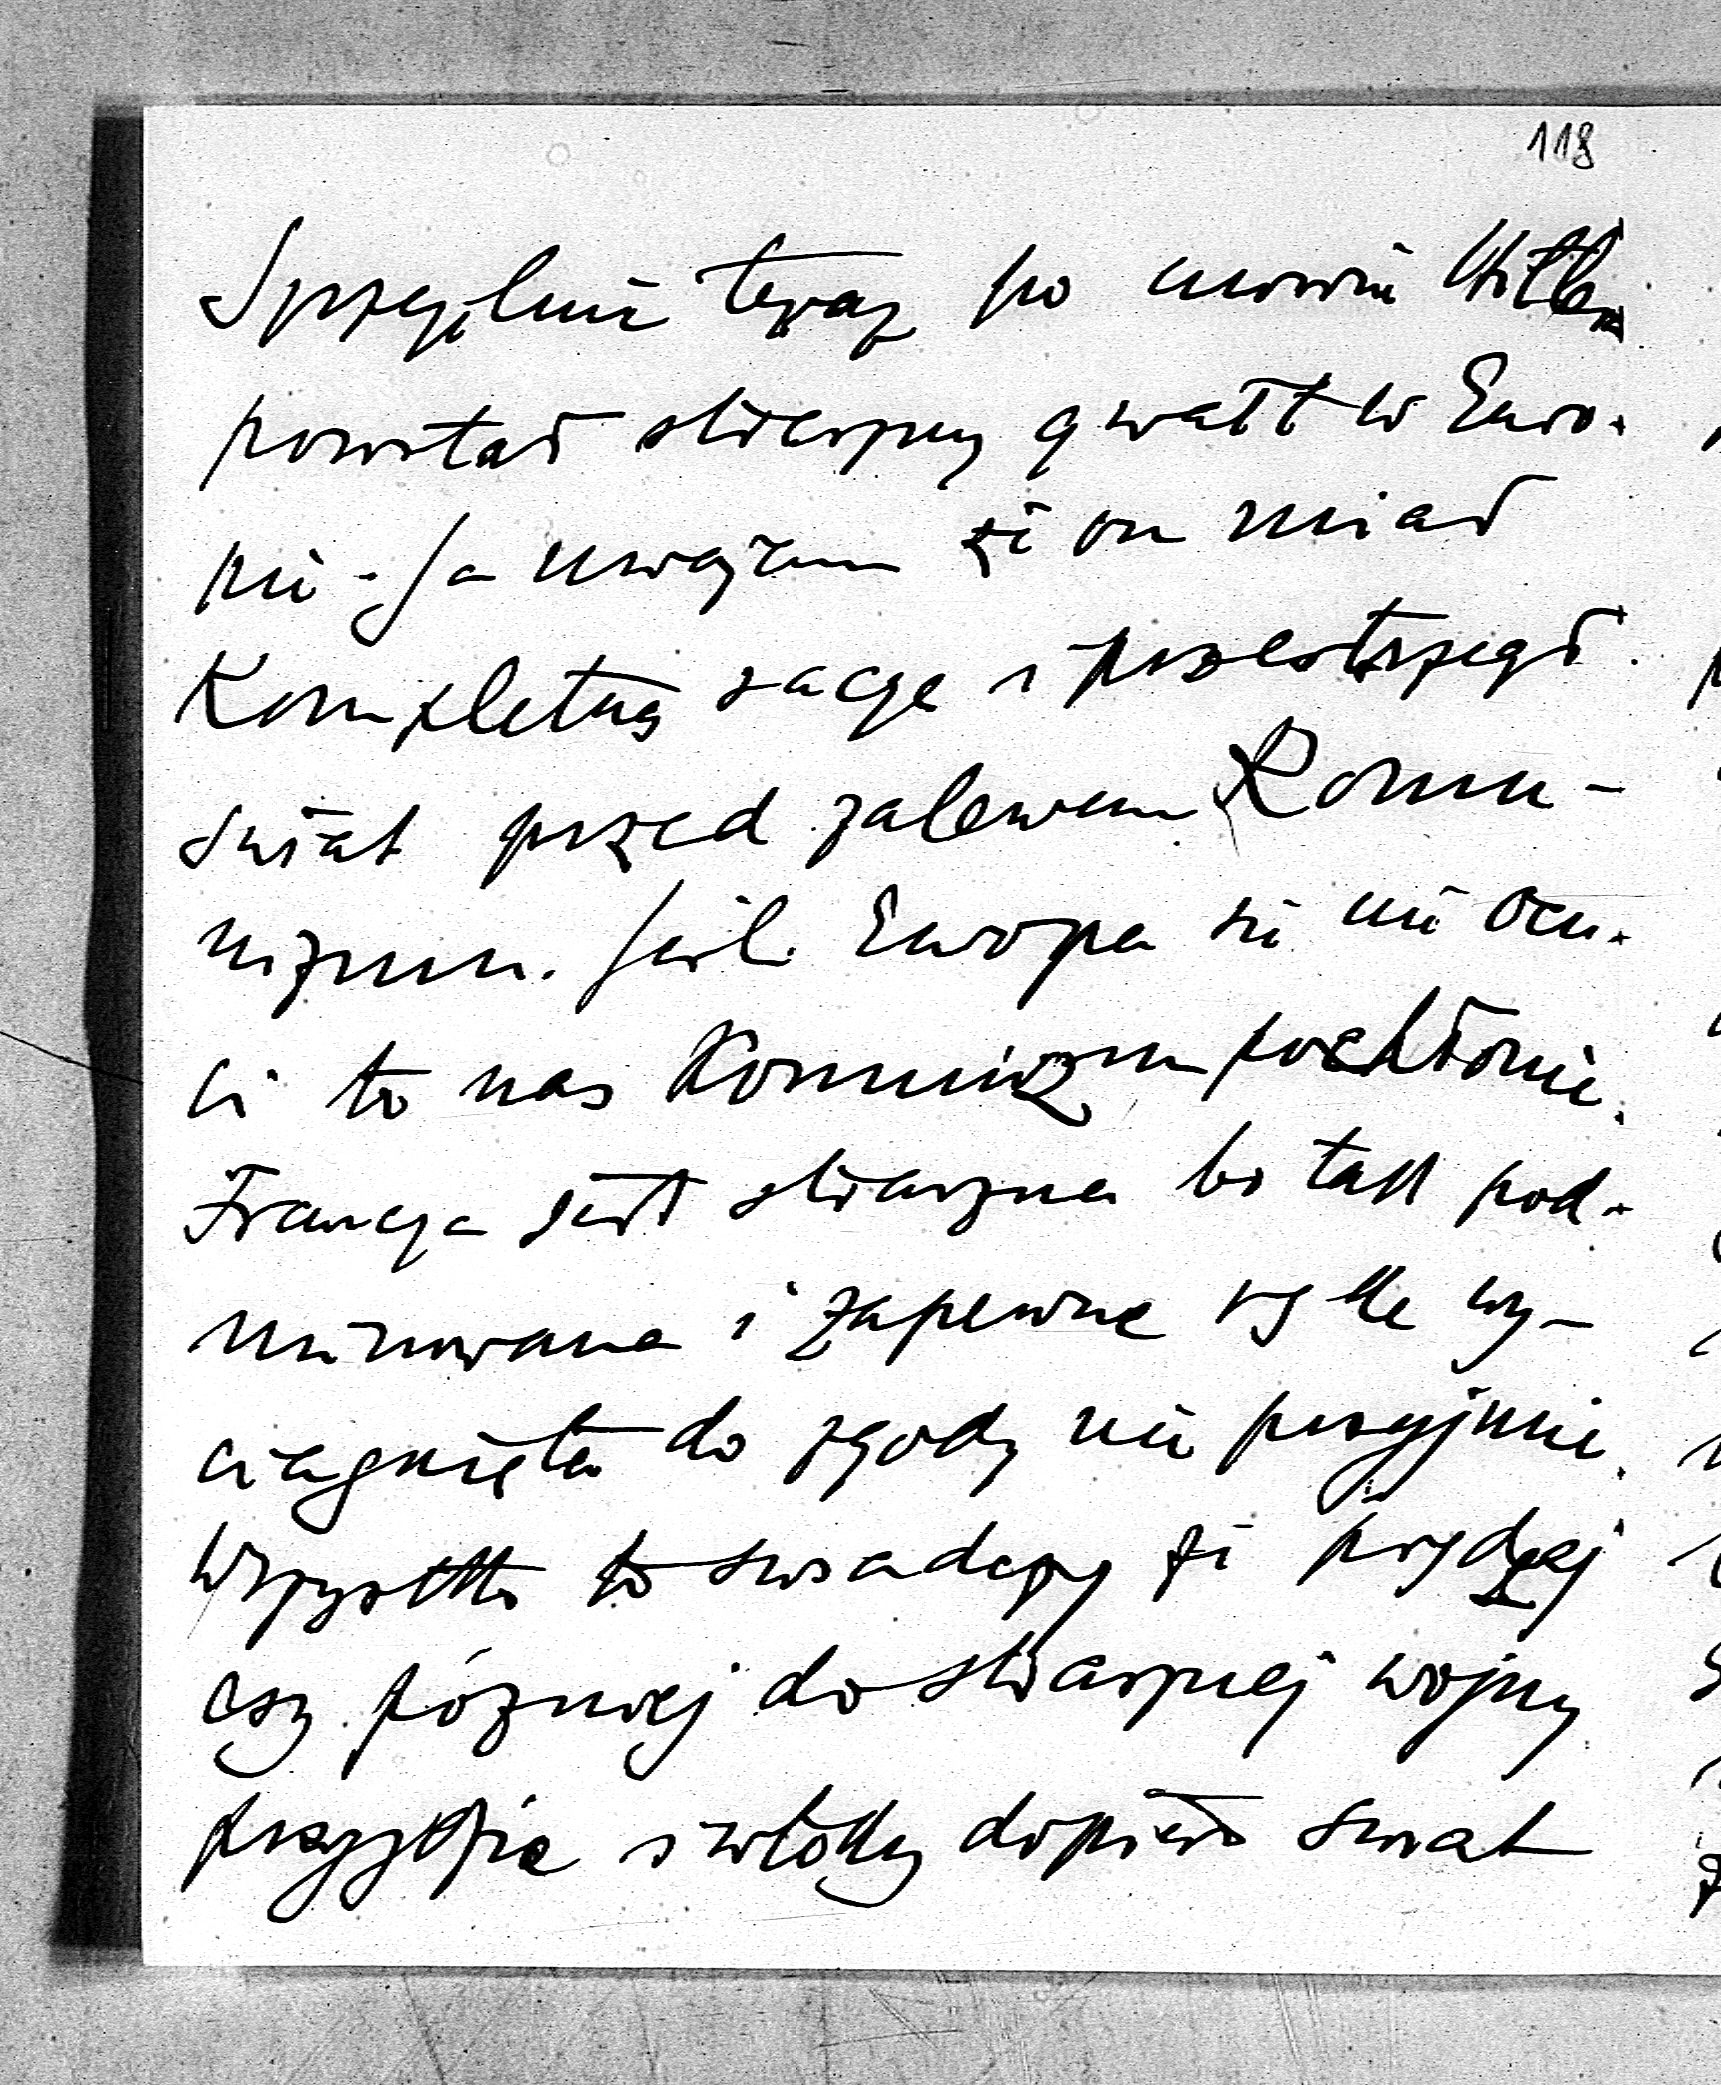 118
Specjalnie teraz po mowie Hitlera
powstał straszny gwałt w Euro-
pie - Ja uważam że on miał
Kompletną rację i przestrzegł
świat przed zalewem Komu-
nizmu. Jeśli Europa się nie ocu-
ci to nas Komunizm pochłonie.
Francja jest straszna bo tak pod-
minowana i zapewne rękę wy-
ciągniętą do zgody nie przyjmie.
Wszystko to świadczy że prędzej
czy później do strasznej wojny
przyjdzie i wtedy dopiero świat